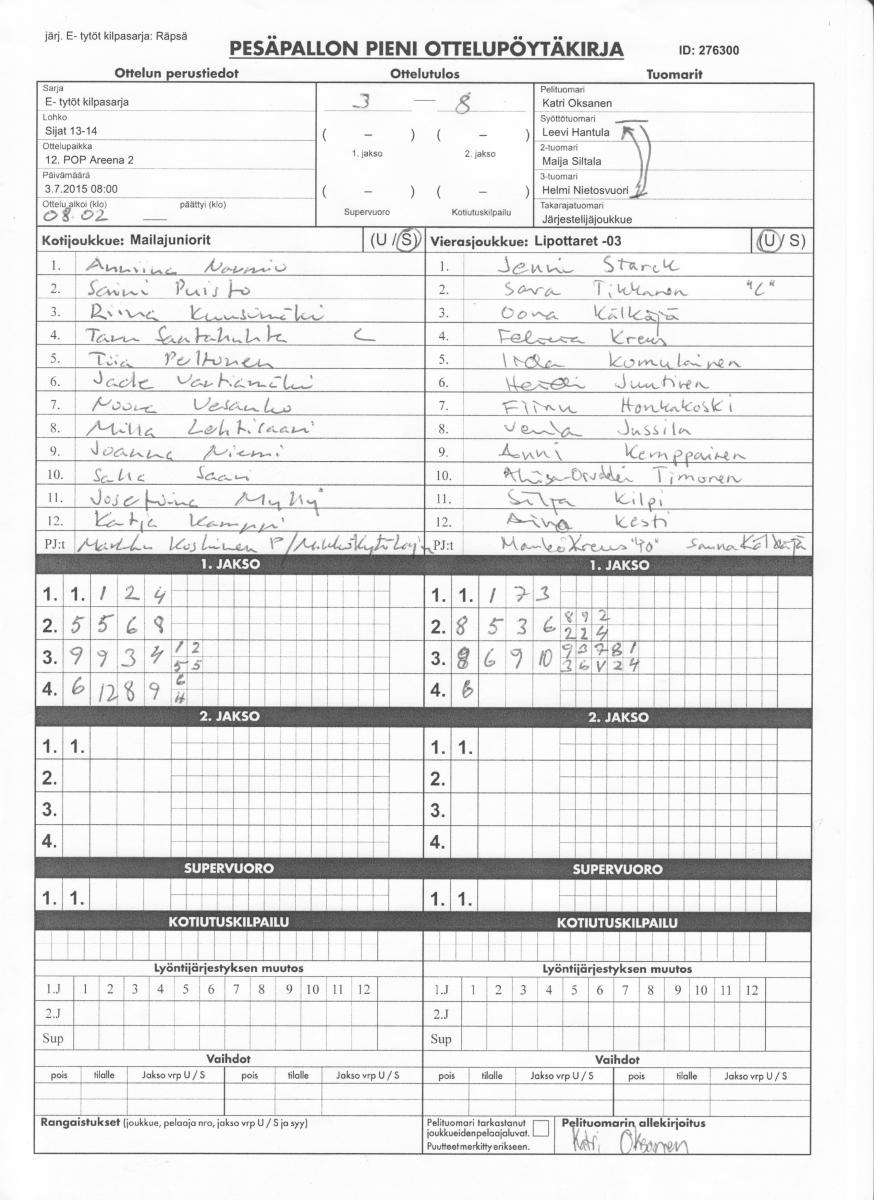 järj. E- tytöt kilpasarja: Räpsä
PESÄPALLON PIENI OTTELUPÖYTÄKIRJA ID: 276300
Ottelun perustiedot Ottelutulos Tuomarit
Sarja
E- tytöt kilpasarja
Lohko
Sijat 13-14
Ottelupaikka
12. POP Areena 2
Päivämäärä
3.7.2015 08:00
Ottelu alkoi (klo) päättyi (klo)
08.02
3 — 8
( – ) ( – )
1. jakso 2. jakso
( – ) ( – )
Supervuoro Kotiutuskilpailu
Pelituomari
Katri Oksanen
Syöttötuomari
Leevi Hantula
2-tuomari
Maija Siltala
3-tuomari
Helmi Nietosvuori
Takarajatuomari
Järjestelijäjoukkue
Kotijoukkue: Mailajuniorit (U / S) Vierasjoukkue: Lipottaret -03 (U / S)
1. 1. Jenni Starck
2. Saini Puisto 2. Sara Tikkanen "C"
3. Riina Kuusimäki 3. Oona Kälkäjä
4. Taru Santahuhta C 4. Kreus
5. Tiia Peltonen 5. Iida Komulainen
6. Jade Vartiamäki 6. Heidi Juntinen
7. Noora Vesanko 7. Elina Honkakoski
8. Milla Lehtisaari 8. Venla Jussila
9. Joanna Niemi 9. Anni Kemppainen
10. Salla Saari 10. Timonen
11. Josefiina Mylly 11. Silja Kilpi
12. Katja Kamppi 12. Aino Kesti
PJ:t Markku Koskinen P / PJ:t Kreus "40" Sanna Kälkäjä
1. JAKSO 1. JAKSO
1. 1. 1 2 4 1. 1. 1 7 3
2. 5 5 6 8 2. 8 5 3 6 8 9 2
2 2 4
3. 9 9 3 4 1 2 3. 8 6 9 10 9 3 7 8 1
5 5 3 6 V 2 4
4. 6 12 8 9 6 4. 6
11
2. JAKSO 2. JAKSO
1. 1. 1. 1.
2. 2.
3. 3.
4. 4.
SUPERVUORO SUPERVUORO
1. 1. 1. 1.
KOTIUTUSKILPAILU KOTIUTUSKILPAILU
Lyöntijärjestyksen muutos Lyöntijärjestyksen muutos
1.J 1 2 3 4 5 6 7 8 9 10 11 12 1.J 1 2 3 4 5 6 7 8 9 10 11 12
2.J 2.J
Sup Sup
Vaihdot Vaihdot
pois tilalle Jakso vrp U / S pois tilalle Jakso vrp U / S pois tilalle Jakso vrp U / S pois tilalle Jakso vrp U / S
Rangaistukset (joukkue, pelaaja nro, jakso vrp U / S ja syy)
Pelituomari tarkastanut
joukkueidenpelaajaluvat.
Puutteet merkitty erikseen.
Pelituomarin allekirjoitus
Katri Oksanen